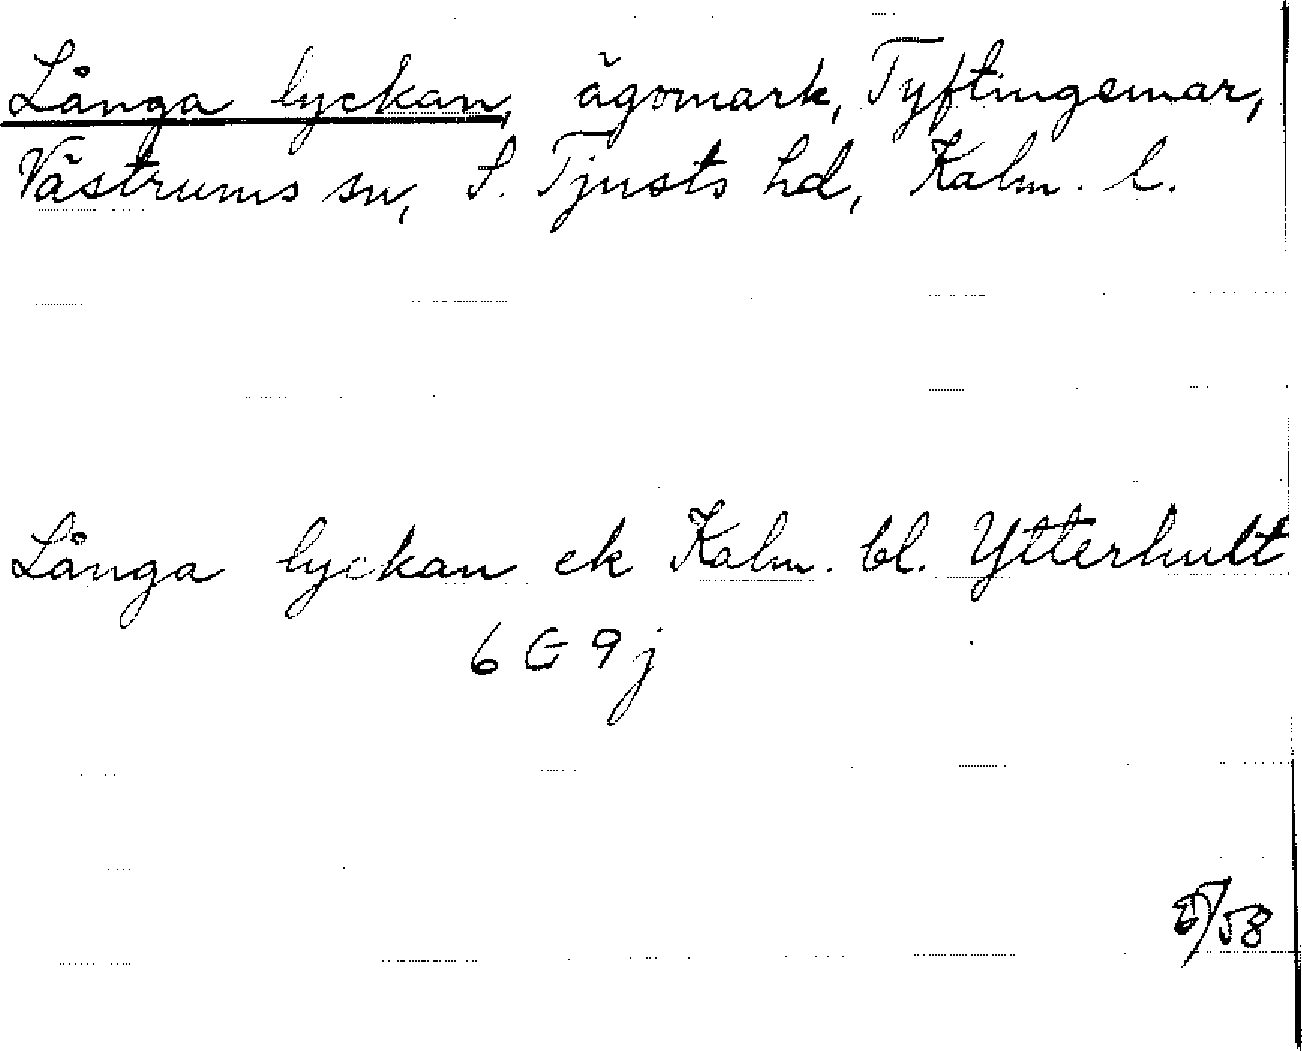 Långa lyckan, ägomark, Tyftingemar,
Västrums sn, S. Tjusts hd, Kalm. l.
Långa lyckan ek Kalm. bl. Ytterhult
6 G 9 j
/58